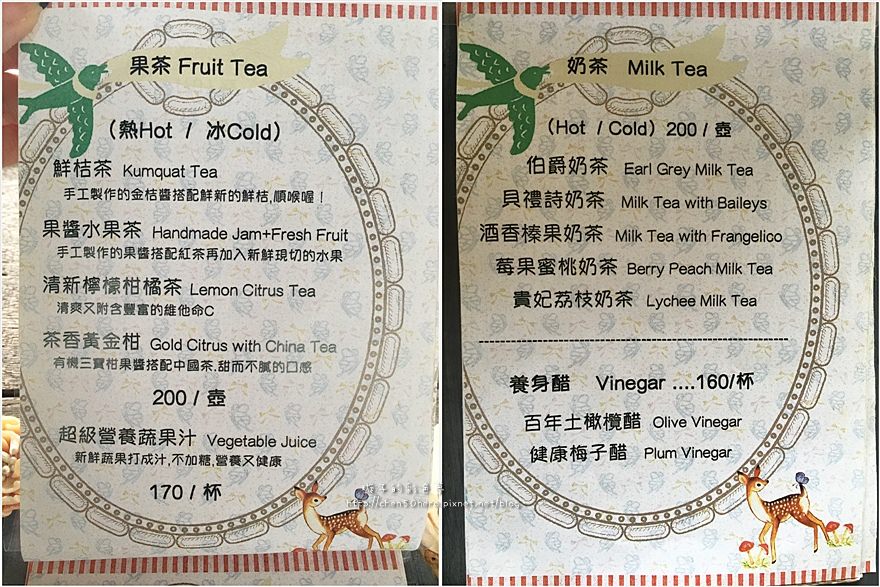 果茶 Fruit Tea
(熱Hot / 冰Cold)
鮮桔茶 Kumquat Tea
手工製作的金桔醬搭配鮮新的鮮桔,順喉喔!
果醬水果茶 Handmade Jam+Fresh Fruit
手工製作的果醬搭配紅茶再加入新鮮現切的水果
清新檸檬柑橘茶 Lemon Citrus Tea
清爽又附含豐富的維他命C
茶香黃金柑 Gold Citrus with China Tea
有機三寶柑果醬搭配中國茶,甜而不膩的口感
200 / 壺
超級營養蔬果汁 Vegetable Juice
新鮮蔬果打成汁,不加糖,營養又健康
170 / 杯
奶茶 Milk Tea
(Hot / Cold) 200 / 壺
伯爵奶茶 Earl Grey Milk Tea
貝禮詩奶茶 Milk Tea with Baileys
酒香榛果奶茶 Milk Tea with Frangelico
莓果蜜桃奶茶 Berry Peach Milk Tea
貴妃荔枝奶茶 Lychee Milk Tea
養身醋 Vinegar ....160/杯
百年土橄欖醋 Olive Vinegar
健康梅子醋 Plum Vinegar